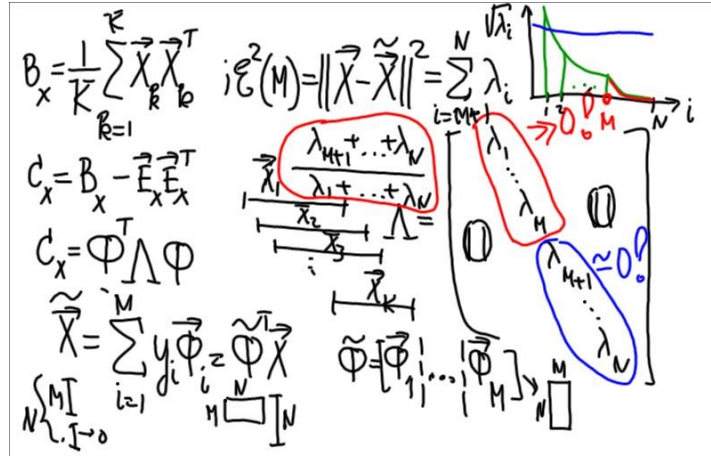 B_x = 1/K Σ_{k=1}^{K} X⃗_k X⃗_k^T ; ε²(M) = ||X⃗ - X̃⃗||² = Σ_{i=M+1}^{N} λ_i
√λ_i
1 2 ... M N i
→ 0!
C_x = B_x - E⃗_x E⃗_x^T
λ_{M+1} + ... + λ_N
λ_1 + ... + λ_N
X⃗_1
X_2
X_3
X⃗_K
Λ =
λ_1 ... λ_M
0 0
λ_{M+1} ... λ_N
≈ 0!
C_x = Φ^T Λ Φ
X̃⃗ = Σ_{i=1}^{M} y_i Φ⃗_i = Φ̃^T X⃗
Φ̃ = [Φ⃗_1 ¦ ... ¦ Φ⃗_M]
N { M I
I → 0
M N ] N
M
N